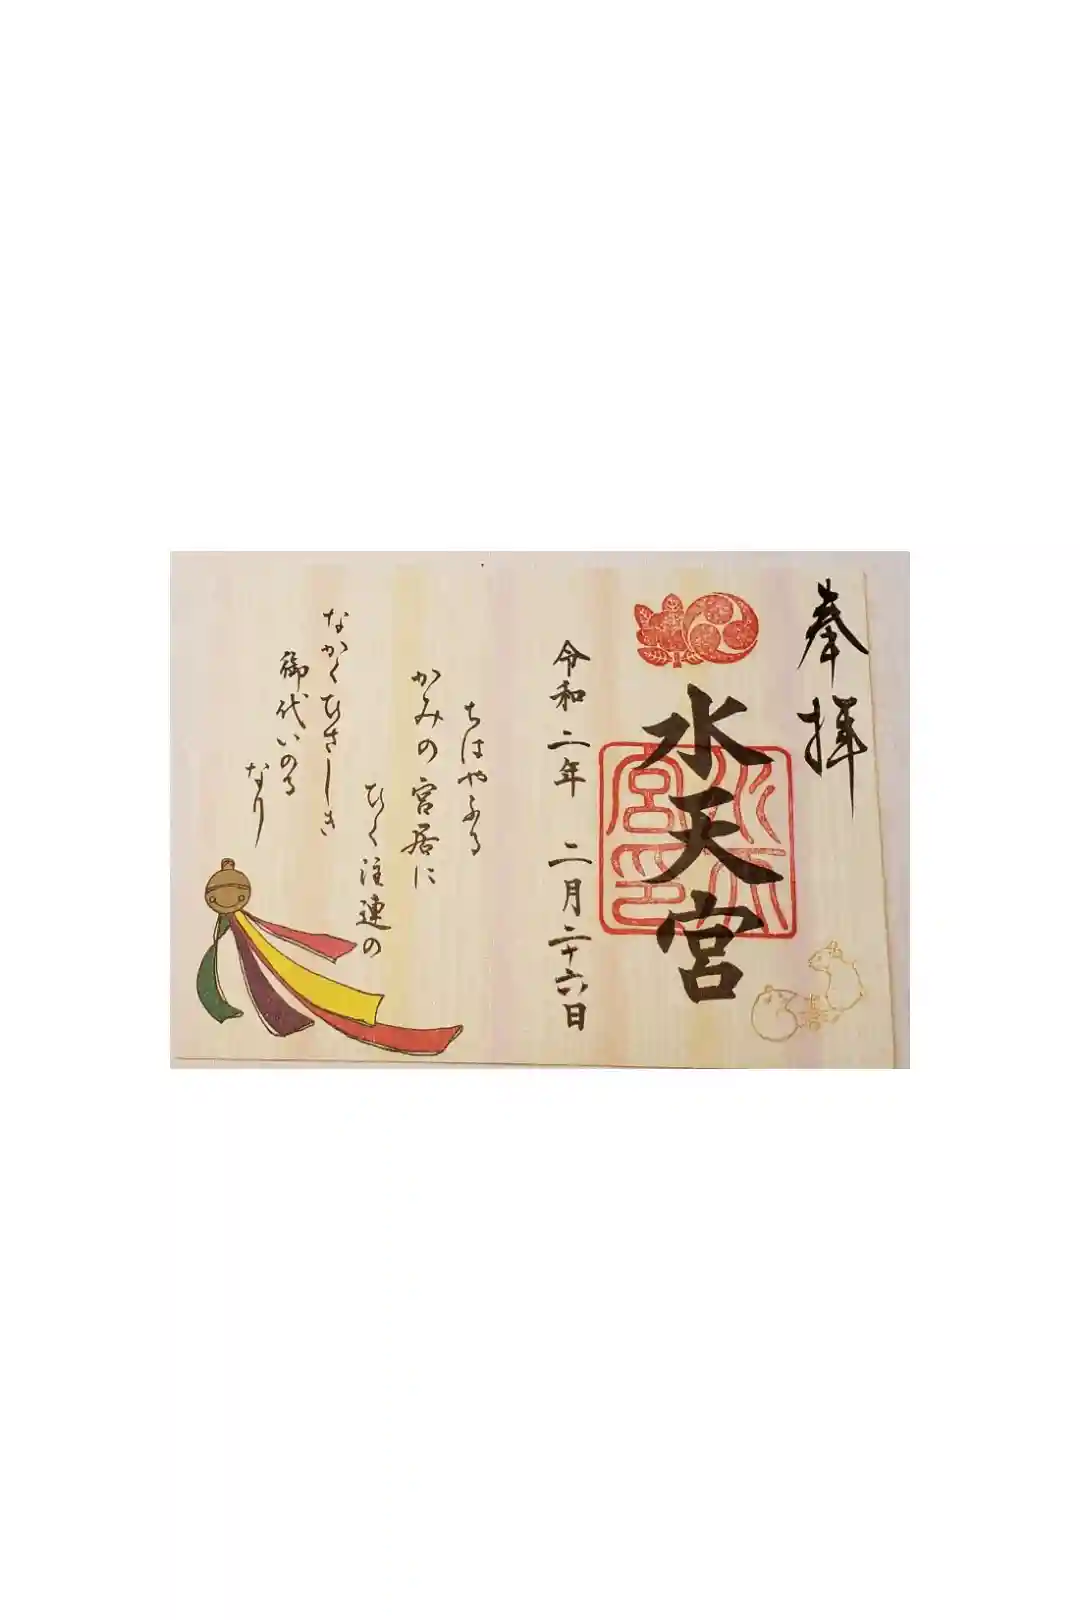 奉拝
水天宮
令和二年 二月二十六日
ちはやふる
かみの宮居に
ひく注連の
なかくひさしき
御代いのる
なり